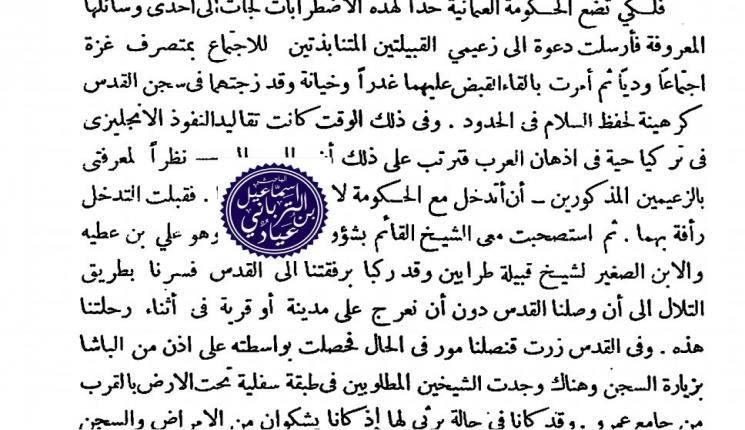 فلكي تضع الحكومة العثمانية حداً لهذه الاضطرابات لجأت الى احدى وسائلها
المعروفة فأرسلت دعوة الى زعيمي القبيلتين المتنابذتين للاجتماع بمتصرف غزة
اجتماعًا وديًا ثم أمرت بالقاء القبض عليهما غدراً وخيانة وقد زجتهما في سجن القدس
كرهينة لحفظ السلام فى الحدود . وفى ذلك الوقت كانت تقاليد النفوذ الانجليزى
فى تركيا حية فى اذهان العرب فترتب على ذلك — نظراً لمعرفتى
بالزعيمين المذكورين — أن أتدخل مع الحكومة . فقبلت التدخل
رأفة بهما . ثم استصحبت معى الشيخ القائم وهو علي بن عطيه
والابن الصغير لشيخ قبيلة طرايين وقد ركبا برفقتنا الى القدس فسرنا بطريق
التلال الى أن وصلنا القدس دون أن نعرج على مدينة أو قرية فى أثناء رحلتنا
هذه . وفى القدس زرت قنصلنا مور فى الحال فحصلت بواسطته على اذن من الباشا
بزيارة السجن وهناك وجدت الشيخين المطلوبين فى طبقة سفلية تحت الارض بالقرب
من جامع عمرو . وقد كانا فى حالة يرثى لها إذ كانا يشكوان من الامراض والسجن
الباحث
اسماعيل
بن
الترباني
عيادي